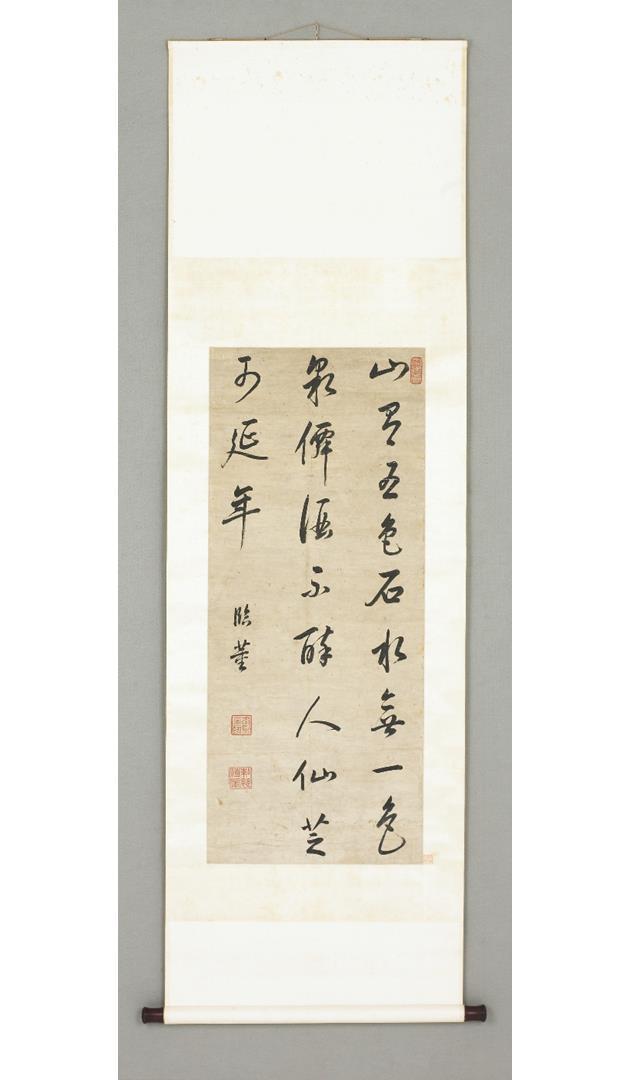 山有五色石水無一色
泉僊酒不醉人仙芝
可延年
臨董